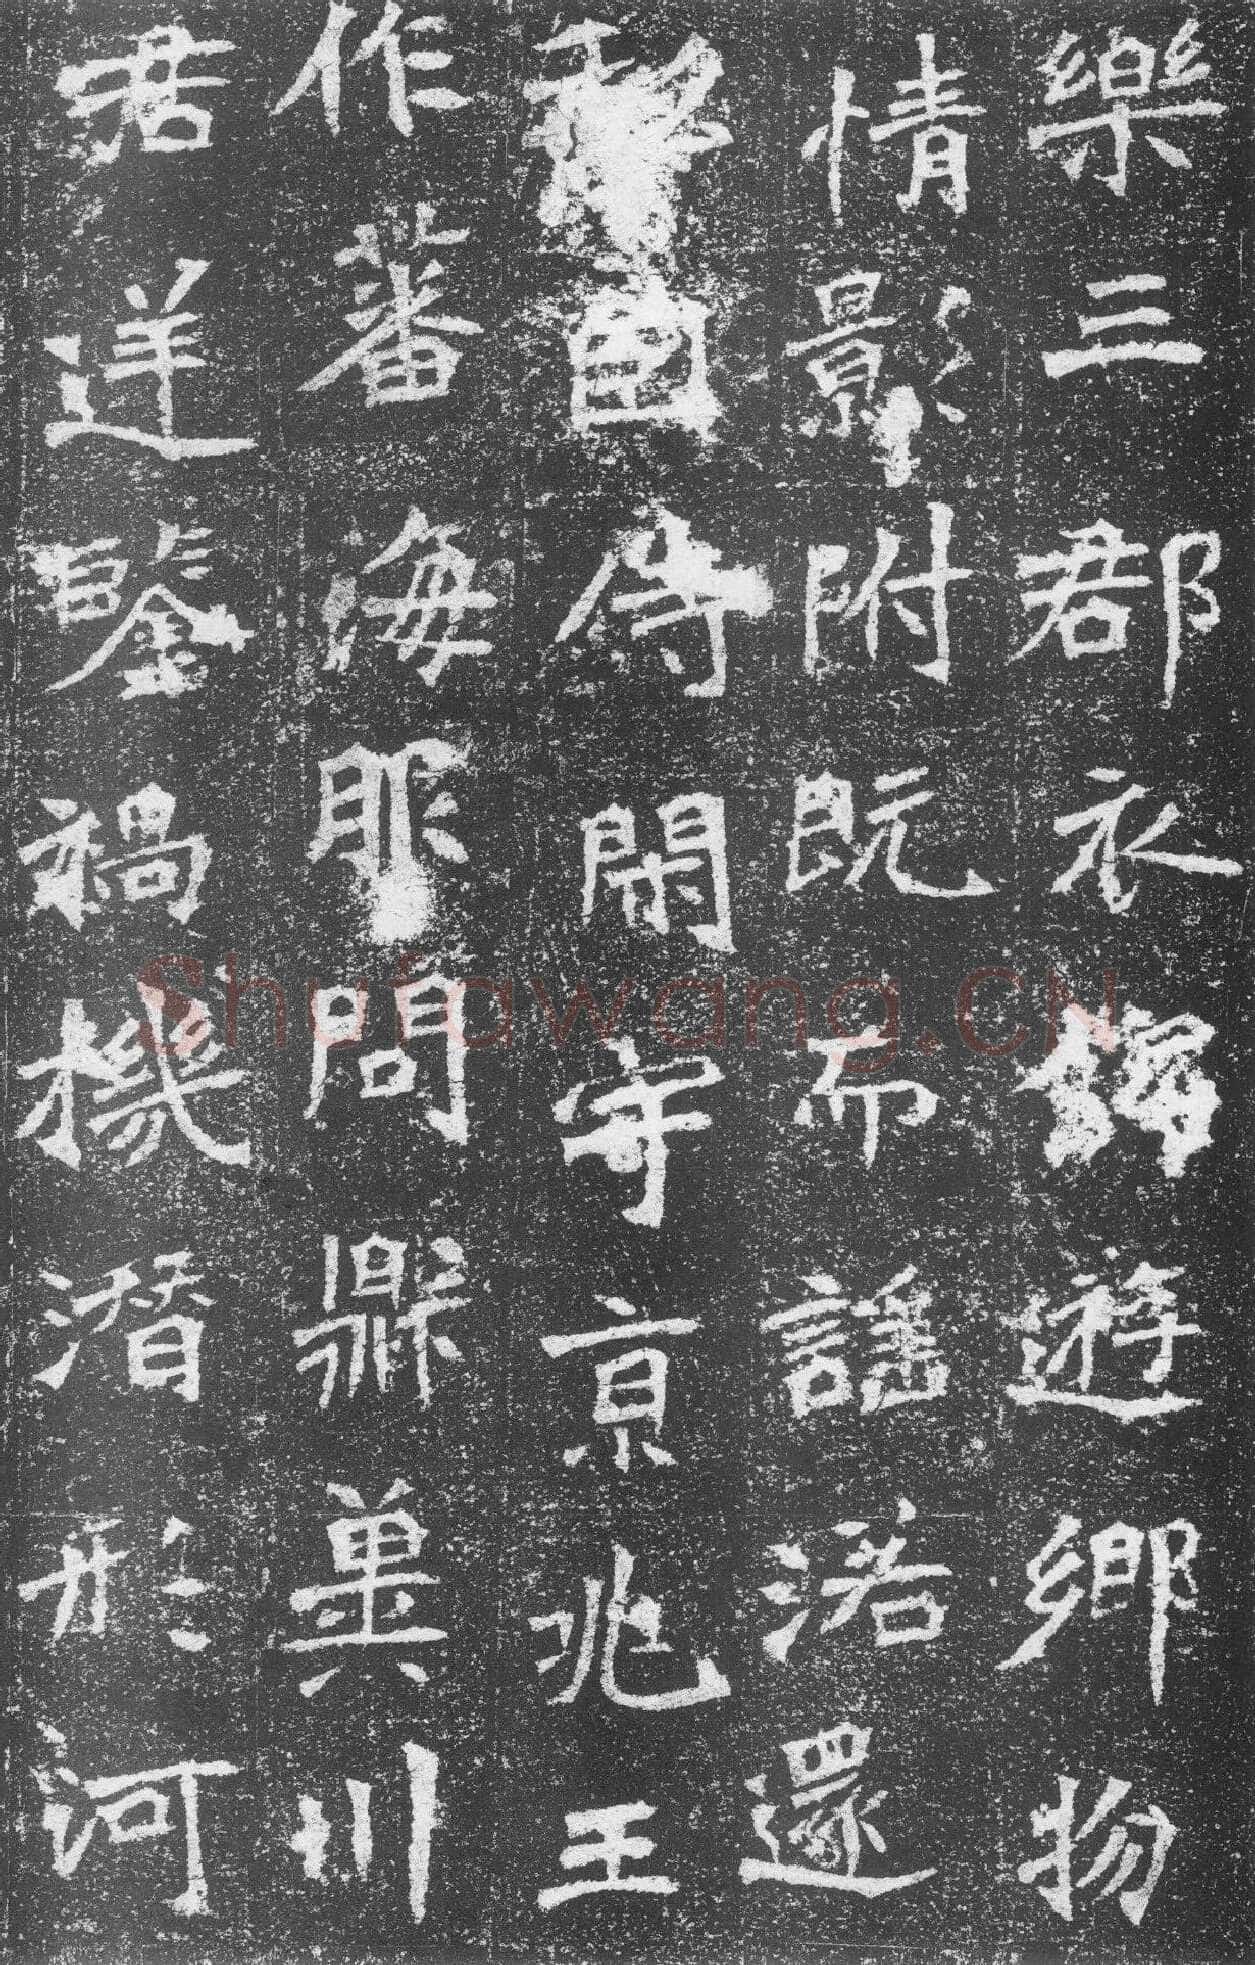 樂三郡衣錦遊鄉物
情影附既而謠洛還
侍閑守京兆王
作蕃海問鼎冀川
君逆鑒禍機潛形河
Shufawang.CN